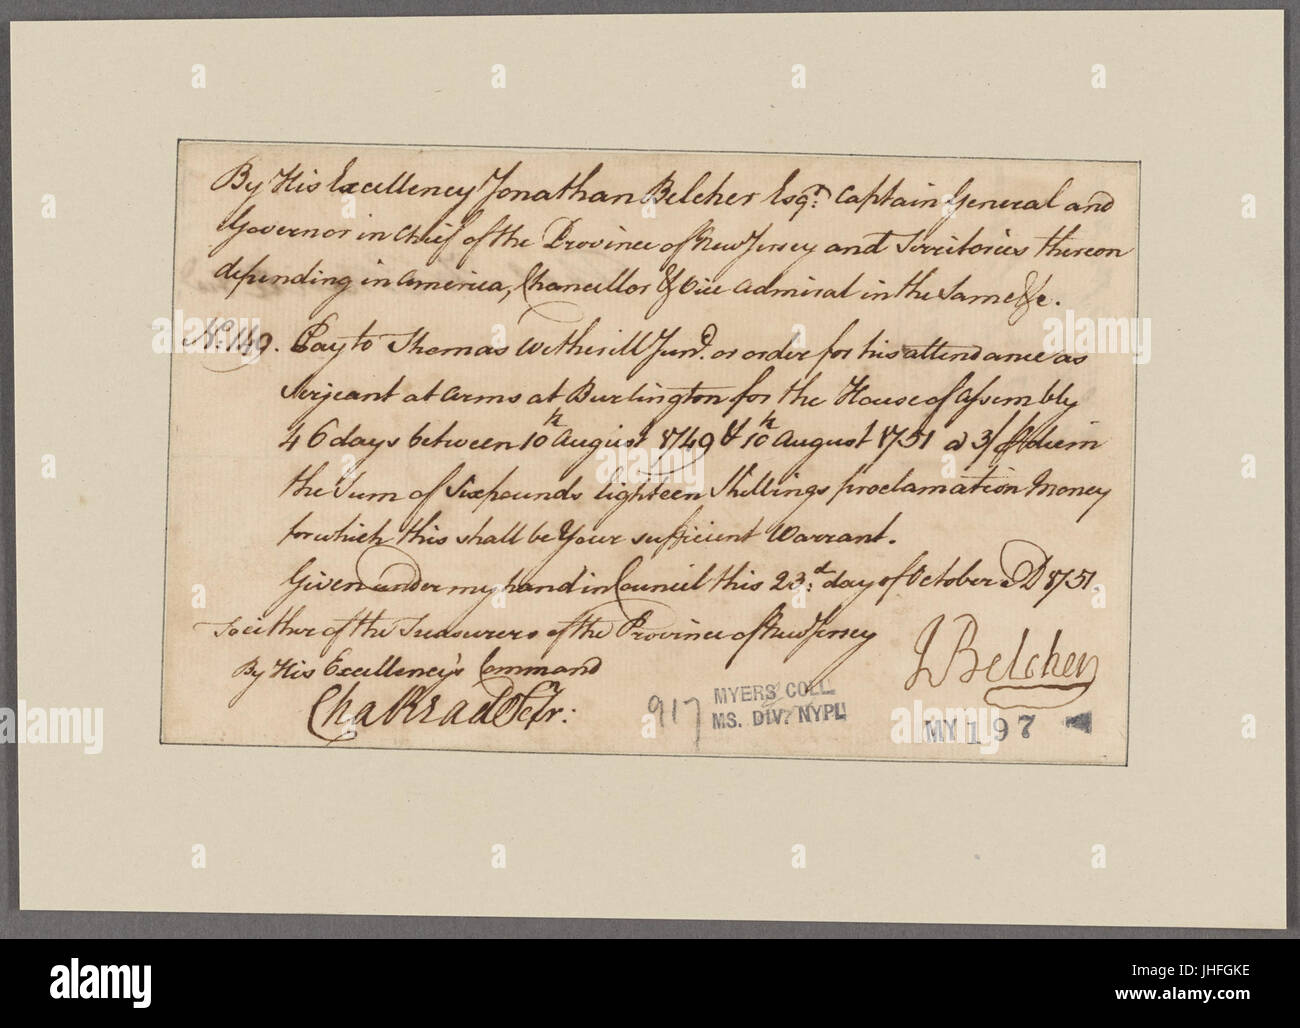 By His Excellency Jonathan Belcher Esqr. Captain General and
Governor in Cheif of the Province of New Jersey and Territories thereon
depending in America, Chancellor & Vice Admiral in the Same &c.
No. 149. Pay to Thomas Wetherill Junr. or order for his attendance as
Serjeant at Arms at Burlington for the House of Assembly
46 days between 10th August 1749 & 10th August 1751 a 3/ ⅌ diem
the Sum of Six pounds Eighteen Shillings proclamation Money
for which this shall be Your sufficient Warrant.
Given under my hand in Council this 23.d day of October AD 1751.
To either of the Treasurers of the Province of New Jersey
By His Excellency's Command
J Belcher
Cha Read Secr:
917
MYERS COLL.
MS. DIV. NYPL
MY 197
alamy
alamy stock photo
JHFGKE
www.alamy.com